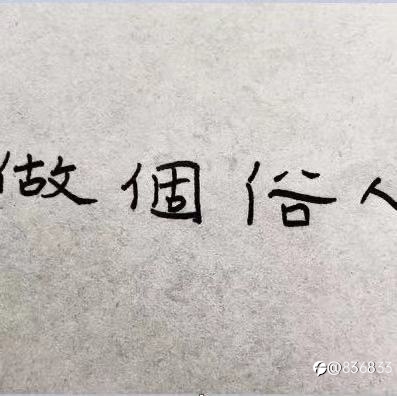 做個俗人
@836833